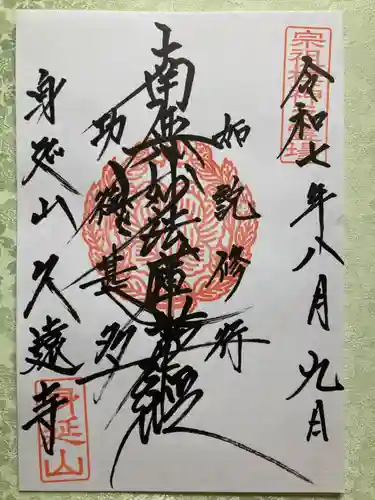 令和七年八月九日
如説修行
南無妙法蓮華経
功徳甚多
身延山久遠寺
身延山